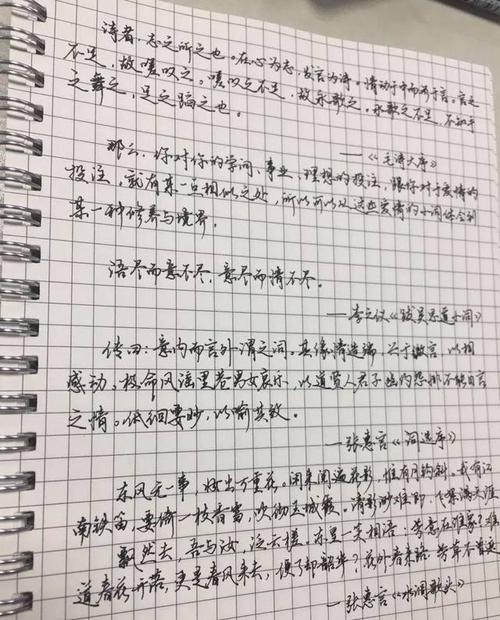 诗者，志之所之也。在心为志，发言为诗。情动于中而形于言。言之
不足，故嗟叹之。嗟叹之不足，故永歌之。永歌之不足，不知手
之舞之，足之蹈之也。
——《毛诗大序》
那么，你对你的学问、事业、理想的投注，跟你对于爱情的
投注，就有某一点相似之处，所以可以从这些爱情的小词体会到
某一种修养与境界。
语尽而意不尽，意尽而情不尽。
——李之仪《跋吴思道小词》
传曰：意内而言外谓之词。其缘情造端，兴于微言，以相
感动。极命风谣里巷男女哀乐，以道贤人君子幽约怨悱不能自言
之情。低徊要眇，以喻其致。
——张惠言《词选序》
东风无一事，妆出万重花。闲来阅遍花影，惟有月钩斜。我有江
南铁笛，要倚一枝香雪，吹彻玉城霞。清影渺难即，飞絮满天涯
飘然去，吾与汝，泛云槎。东皇一笑相语：芳意在谁家？难
道春花开落，更是春风来去，便了却韶华？花外春来路，芳草不曾遮
——张惠言《水调歌头》